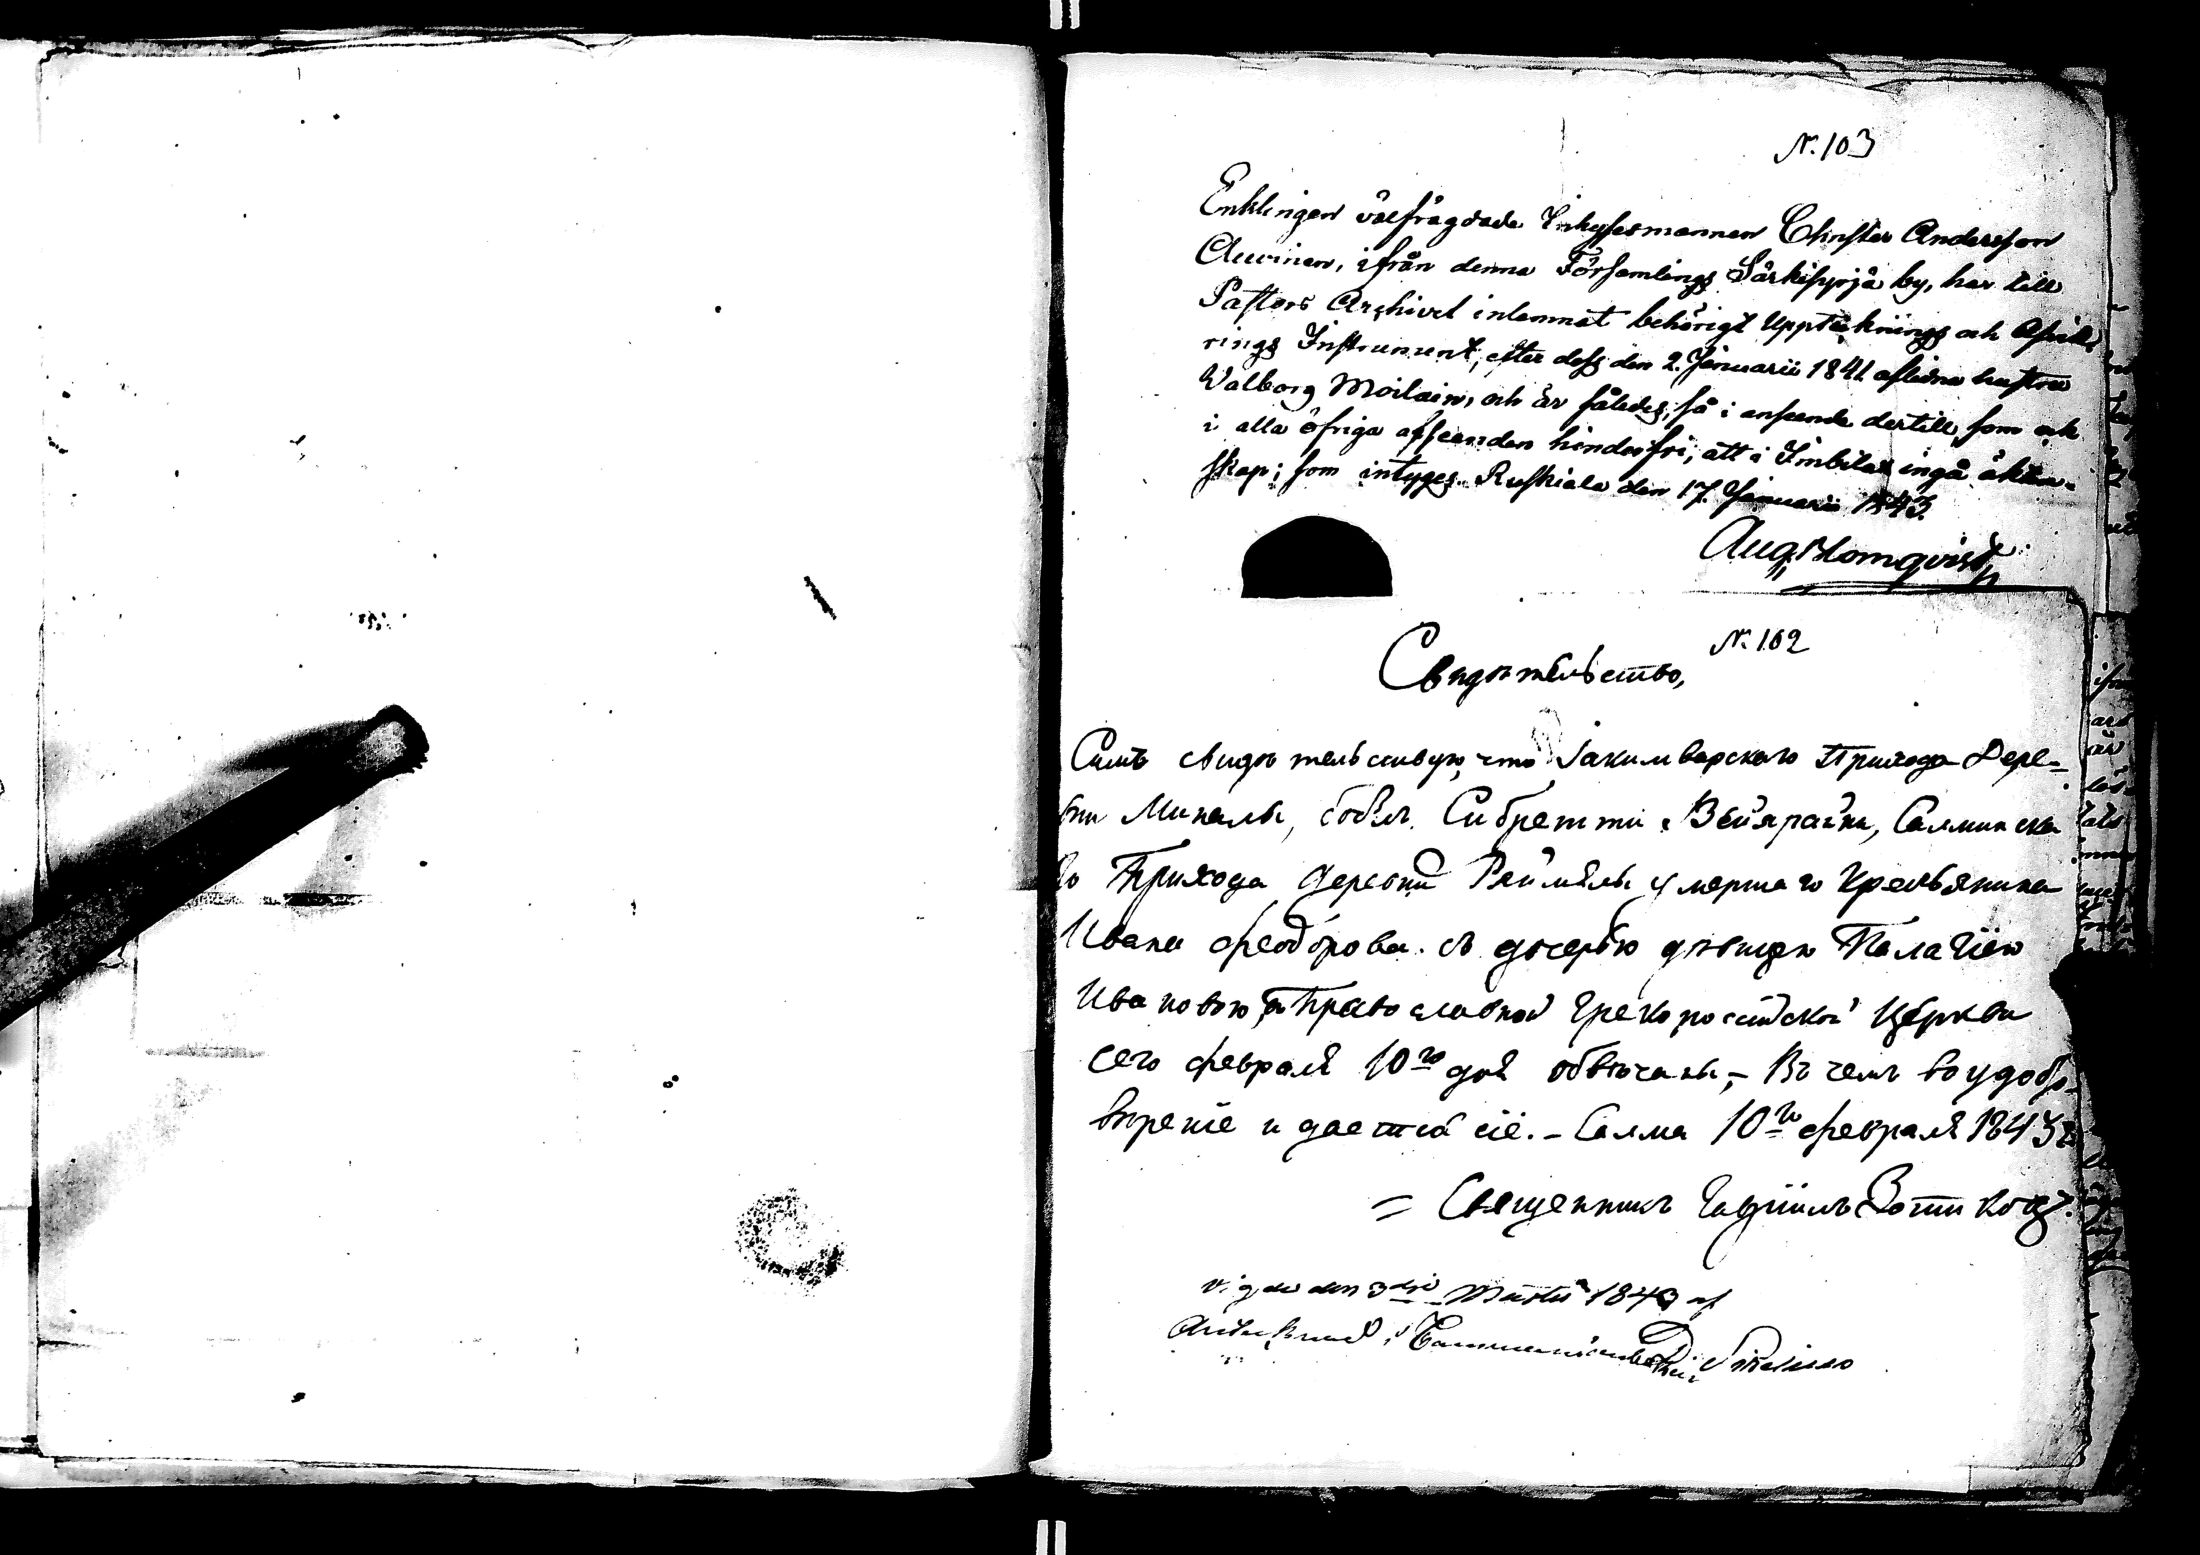 N. 103
Enklingen välfrägdade Inhysesmannen Christer Andersson
Auvinen, ifrån denna Församlings Särkisyrjä by, har till
Pastors Archivet inlemnat behörigt Upptecknings och Afvitt-
rings Instrument, efter dess den 2. Januarii 1841 aflidna hustru
Walborg Moilain, och är således, så i anseende dertill, som ock
i alla öfriga afseenden hindersfri, att i Imbilax ingå äkten-
skap; som intyges. Ruskiala den 17. Januarii 1843.
Aug. Blomqvist
N. 102
Свидѣтельство,
Симъ свидѣтельствую, что Iакимварскаго Прихода Дере-
вни Микели, Собвл. Сибретти Вейярайн, Салминска
го Прихода деревни Реймяли умершаго Крестьянина
Ивана Феодорова съ дочерью дѣвицею Палагiею
Ивановою, в Православной Грекороссiйской Церкви
сего февраля 10го дня обвѣнчаны, – Въ чемъ во удосто-
вѣренiе и дается сiе. – Салма 10го февраля 1843
= Священникъ Гаврiилъ Зотиковъ.
Vigde den 3dje Martii 1843 af